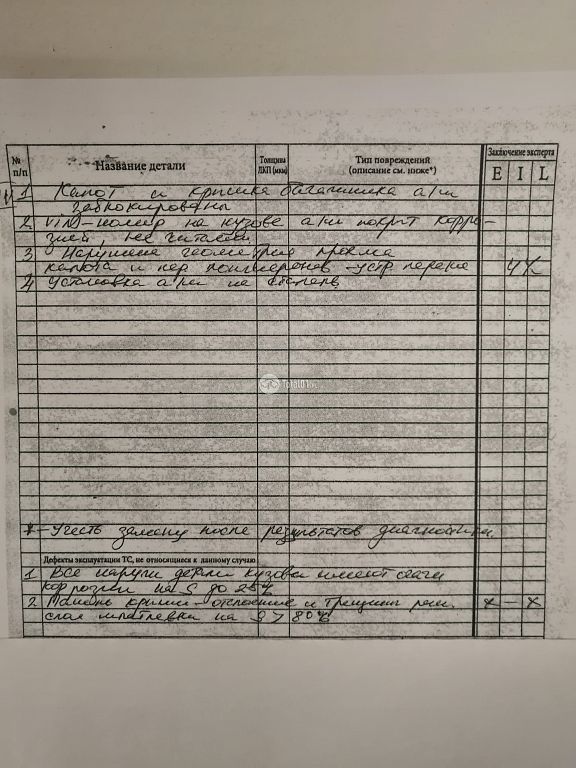 № п/п Название детали Толщина ЛКП (мкм) Тип повреждений (описание см. ниже*) Заключение эксперта
E I L
1 Капот и крышка багажника а/м
заблокированы
2 VIN-номер на кузове а/м покрыт корро-
зией, не читаем
3 Нарушена геометрия проема
капота и пер лонжеронов - устр перекос 4 X
4 Установка а/м на стапель
TOTAL01
*- Учесть замену после результатов диагностики
Дефекты эксплуатации ТС, не относящиеся к данному случаю
1 Все наружн детали кузова имеют очаги
коррозии на S до 25%
2 Панель крыши - отслоение и трещины рем. X - X
слоя шпатлевки на S > 80%